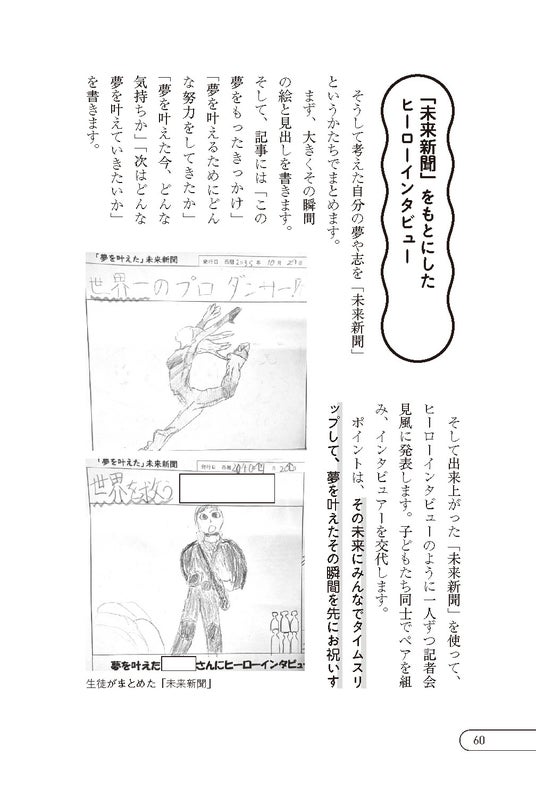 「未来新聞」をもとにした
ヒーローインタビュー
そうして考えた自分の夢や志を「未来新聞」
というかたちでまとめます。
まず、大きくその瞬間
の絵と見出しを書きます。
そして、記事には「この
夢をもったきっかけ」
「夢を叶えるためにどん
な努力をしてきたか」
「夢を叶えた今、どんな
気持ちか」「次はどんな
夢を叶えていきたいか」
を書きます。
「夢を叶えた」未来新聞
発行日 西暦2035年10月29日
世界一のプロダンサー!!
「夢を叶えた」未来新聞
発行日 西暦
世界を救う
夢を叶えた
さんにヒーローインタビュー
生徒がまとめた「未来新聞」
そして出来上がった「未来新聞」を使って、
ヒーローインタビューのように一人ずつ記者会
見風に発表します。子どもたち同士でペアを組
み、インタビュアーを交代します。
ポイントは、その未来にみんなでタイムスリ
ップして、夢を叶えたその瞬間を先にお祝いす
60